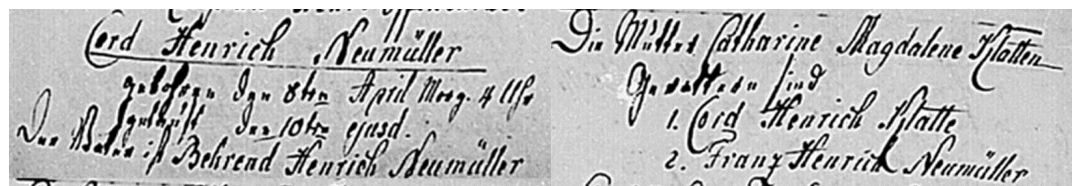 Cord Henrich Neumüller
gebohren den 8ten April Morg. 4 Uhr
getauft den 10ten ejusd.
Der Vater ist Behrend Henrich Neumüller
Die Mutter Catharine Magdalene Klatten
Gevattern sind
1. Cord Henrich Klatte
2. Franz Henrich Neumüller